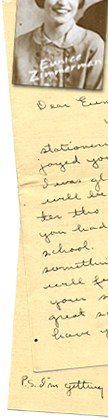 Eunice
Zimmerman
Dear Eun
stationer
joyed you
I was gl
well be
ter tho
you had
school.
somethin
well f
your s
great s
have y
P.S. I'm getting